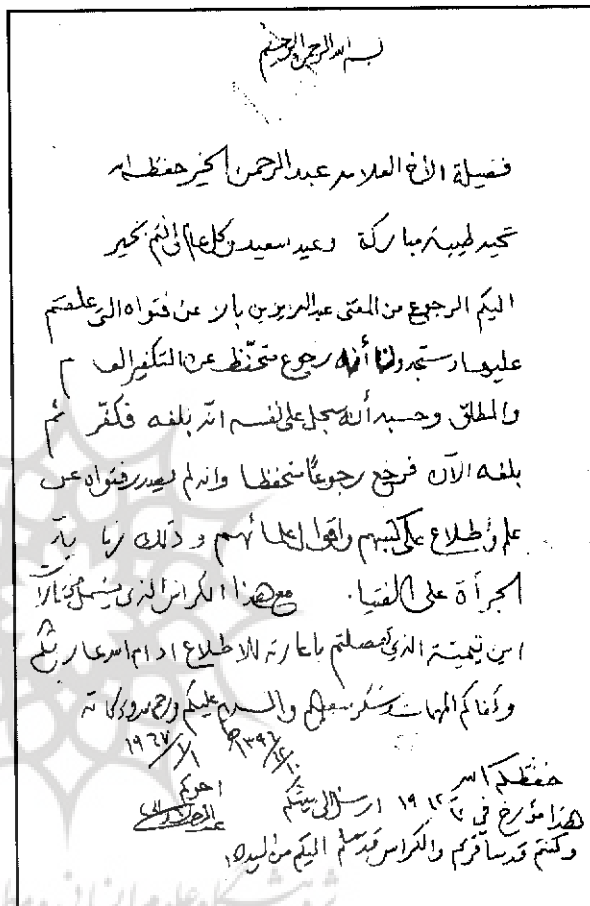 بسم الله الرحمن الرحيم
فضيلة الأخ العلامة عبد الرحمن الخير حفظه الله
تحية طيبة مباركة وعيد سعيد وكل عام وأنتم بخير
اليكم الرجوع من المفتي عبد العزيز بن باز عن فتواه التي علقتم
عليها وستجدون أنه رجوع متحفظ عن التكفير العام
والمطلق وحسبه أنه سجل على نفسه انه بلغه فكفّر ثم
بلغه الآن فرجع رجوعاً متحفظا وانه لم يصدر فتواه عن
علم واطلاع على كتبهم واقوال علمائهم وذلك
الجرأة على الفتيا. مع هذا الكراس الذي يشمل
ابن تيمية الذي تفضلتم باعارته للاطلاع ادام الله
والسلام عليكم ورحمة الله وبركاته
١٩٦٧/١/١
حفظكم الله
اخوكم
هذا مؤرخ في ١٢ ١٩ ارسل الى بيتكم
وكنتم قد سافرتم والكراس قد اليكم من